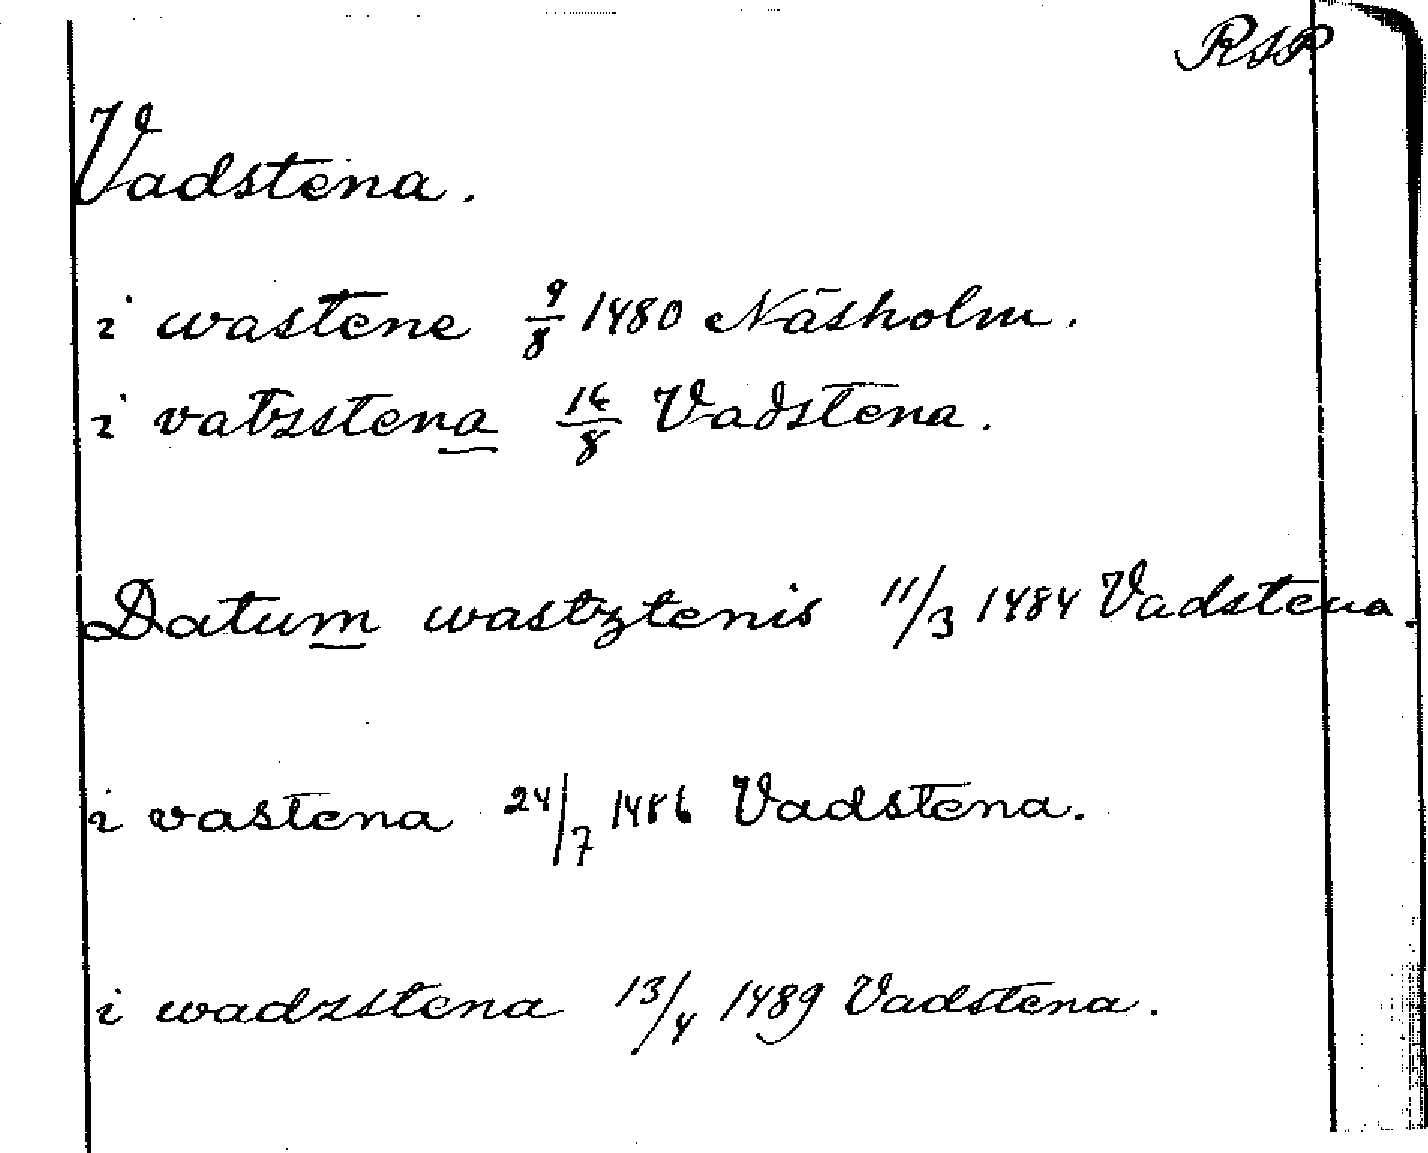 RSP
Vadstena.
i wastene 9/8 1480 Näsholm.
i vatzstena 16/8 Vadstena.
Datum wastztenis 11/3 1484 Vadstena.
i vastena 24/7 1486 Vadstena.
i wadzstena 13/4 1489 Vadstena.